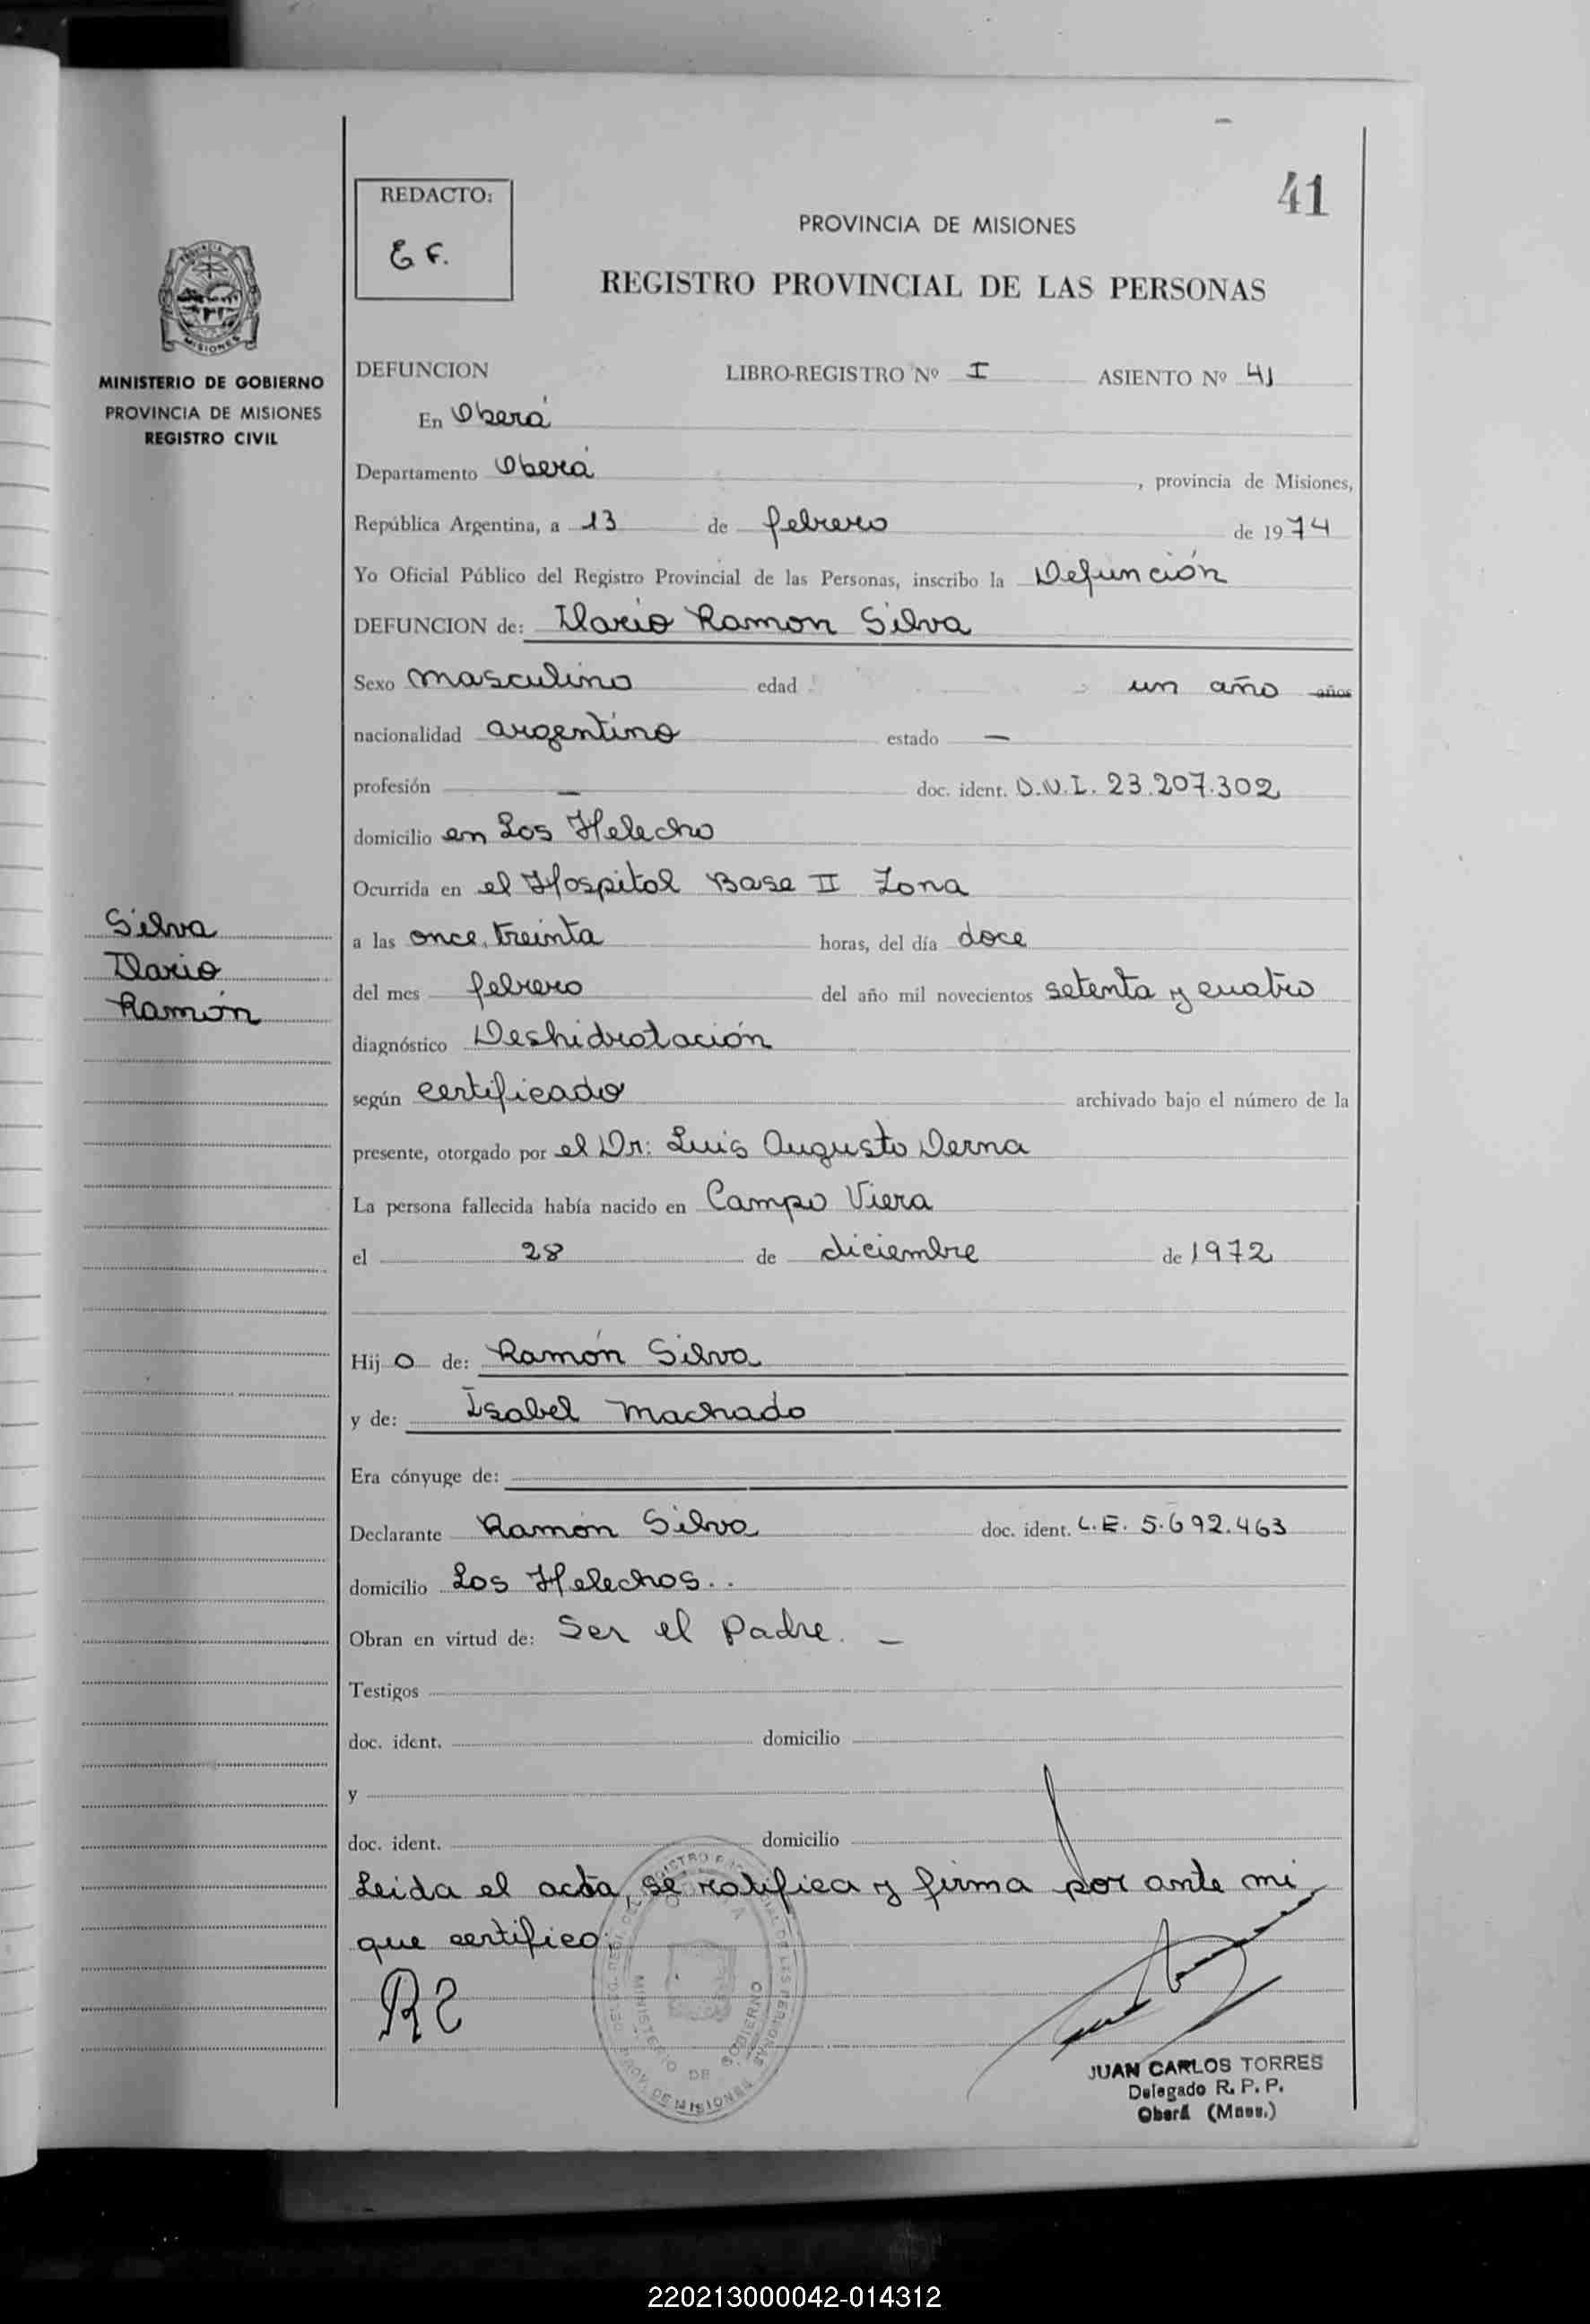 41
REDACTO:
E F.
PROVINCIA DE MISIONES
REGISTRO PROVINCIAL DE LAS PERSONAS
MISIONES
MINISTERIO DE GOBIERNO
PROVINCIA DE MISIONES
REGISTRO CIVIL
DEFUNCION LIBRO-REGISTRO Nº I ASIENTO Nº 41
En Oberá
Departamento Oberá , provincia de Misiones,
República Argentina, a 13 de febrero de 1974
Yo Oficial Público del Registro Provincial de las Personas, inscribo la Defunción
DEFUNCION de: Dario Ramon Silva
Sexo masculino edad un año años
nacionalidad argentino estado —
profesión — doc. ident. D.N.I. 23.207.302
domicilio en Los Helecho
Ocurrida en el Hospital Base II Zona
Silva
Dario
Ramón
a las once, treinta horas, del día doce
del mes febrero del año mil novecientos setenta y cuatro
diagnóstico Deshidratación
según certificado archivado bajo el número de la
presente, otorgado por el Dr: Luis Augusto Derna
La persona fallecida había nacido en Campo Viera
el 28 de diciembre de 1972
Hij o de: Ramón Silva
y de: Isabel Machado
Era cónyuge de:
Declarante Ramón Silva doc. ident. L.E. 5.692.463
domicilio Los Helechos..
Obran en virtud de: Ser el Padre. —
Testigos
doc. ident. domicilio
y
doc. ident. domicilio
Leida el acta, se ratifica y firma por ante mi
que certifico;
MINISTERIO DE GOBIERNO
PROV. DE MISIONES
JUAN CARLOS TORRES
Delegado R. P. P.
Oberá (Mnes.)
220213000042-014312